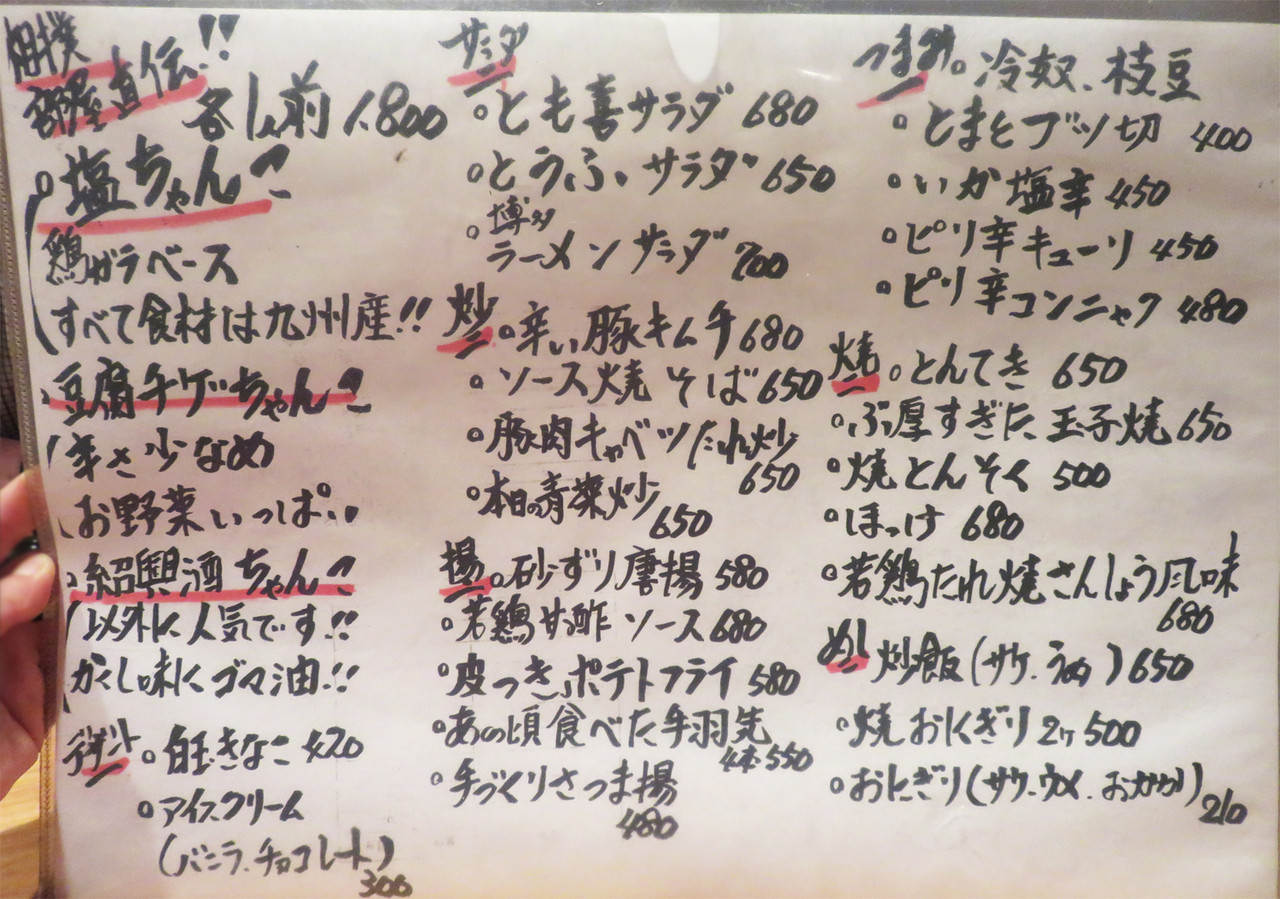 相撲
部屋直伝!!
各1人前 1.800
塩ちゃんこ
鶏ガラベース
すべて食材は九州産!!
豆腐チゲちゃんこ
辛さ少なめ
お野菜いっぱい
紹興酒ちゃんこ
以外に人気です!!
かくし味にゴマ油!!
デザート
白玉きなこ 420
アイスクリーム
(バニラ.チョコレート)
300
サラダ
とも喜サラダ 680
とうふサラダ 650
博多
ラーメンサラダ 700
炒
辛い豚キムチ 680
ソース焼そば 650
豚肉キャベツたれ炒
650
本日の青菜炒
650
揚
砂ずり唐揚 580
若鶏甘酢ソース 680
皮つきポテトフライ 580
あの頃食べた手羽先
4本 550
手づくりさつま揚
480
つまみ
冷奴、枝豆
とまとブツ切 400
いか塩辛 450
ピリ辛キューリ 450
ピリ辛コンニャク 480
焼
とんてき 650
ぶ厚すぎた玉子焼 650
焼とんそく 500
ほっけ 680
若鶏たれ焼さんしょう風味
680
めし
炒飯(サケ.うめ) 650
焼おにぎり 2ヶ 500
おにぎり(サケ.ウメ.おかか)
210